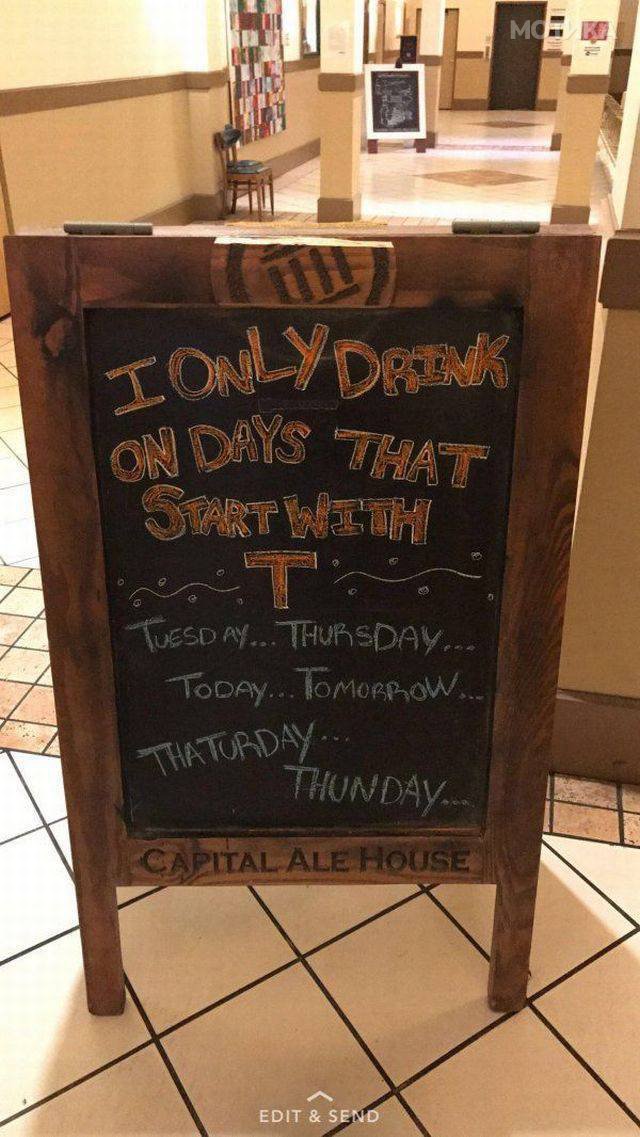 МОТИКА
I ONLY DRINK
ON DAYS THAT
START WITH
T
TUESDAY... THURSDAY...
TODAY... TOMORROW...
THATURDAY...
THUNDAY...
CAPITAL ALE HOUSE
EDIT & SEND